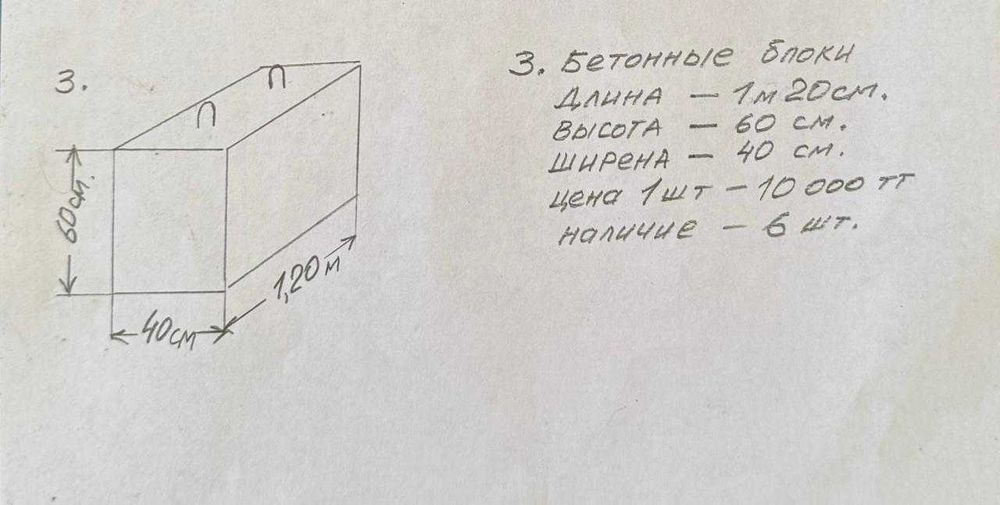 3.
60см.
40см
1,20м
3. Бетонные блоки
Длина – 1м 20см.
высота – 60 см.
ширена – 40 см.
цена 1шт – 10 000 тг
наличие – 6 шт.